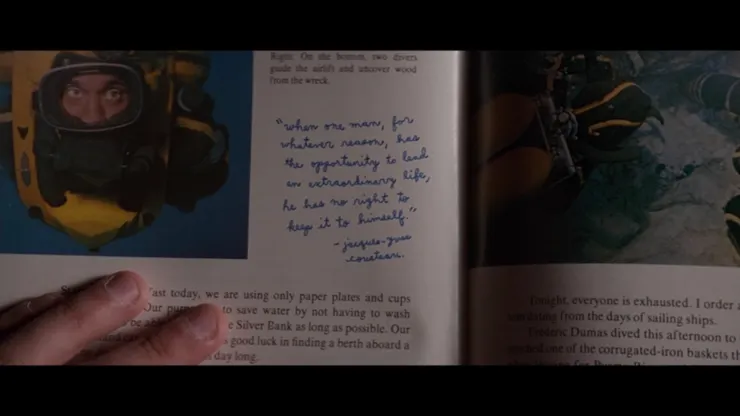 Right: On the bottom, two divers
guide the airlift and uncover wood
from the wreck.
"when one man, for
whatever reason, has
the opportunity to lead
an extraordinary life,
he has no right to
keep it to himself."
-jacques-yves
cousteau.
fast today, we are using only paper plates and cups
Our to save water by not having to wash
be Silver Bank as long as possible. Our
good luck in finding a berth aboard a
day long.
Tonight, everyone is exhausted. I order a
dating from the days of sailing ships.
Frédéric Dumas dived this afternoon to
one of the corrugated-iron baskets th